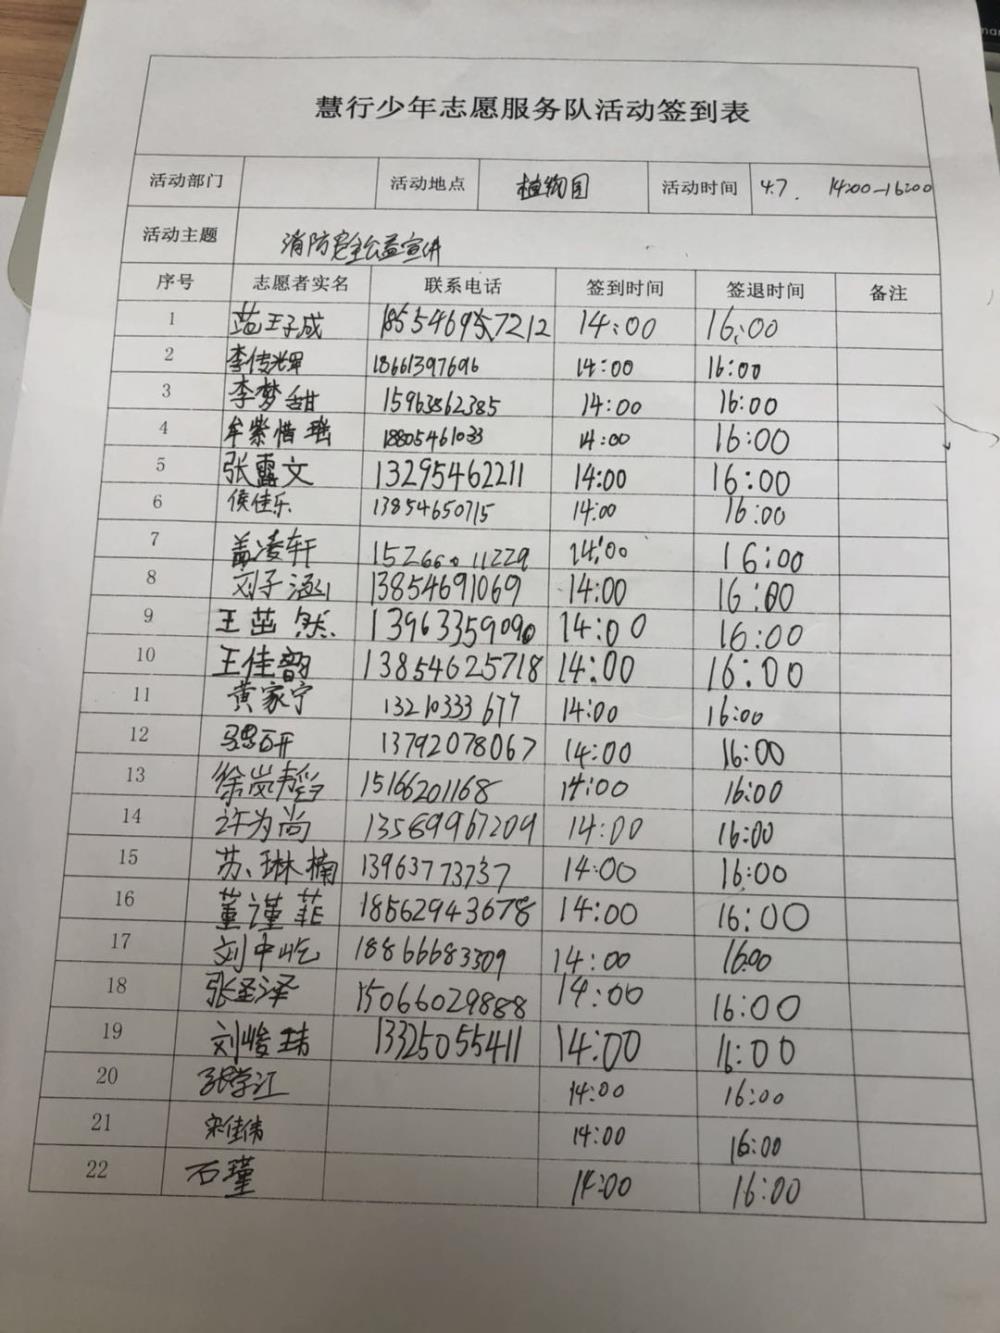 慧行少年志愿服务队活动签到表
活动部门 活动地点 植物园 活动时间 4.7. 14:00-16:00
活动主题 消防安全公益宣讲
序号 志愿者实名 联系电话 签到时间 签退时间 备注
1 范王子威 14:00 16:00
2 李传光军 18661397696 14:00 16:00
3 李梦甜 15963862385 14:00 16:00
4 牟紫惜瑶 18805461033 14:00 16:00
5 张露文 13295462211 14:00 16:00
6 侯佳乐 13854650715 14:00 16:00
7 盖凌轩 14:00 16:00
8 刘子涵 13854691069 14:00 16:00
9 王茁然 13963359090 14:00 16:00
10 王佳韵 13854625718 14:00 16:00
11 黄家宁 13210333677 14:00 16:00
12 13792078067 14:00 16:00
13 徐岚韬 15166201168 14:00 16:00
14 许为尚 13569967209 14:00 16:00
15 苏琳楠 13963773737 14:00 16:00
16 董谨菲 18562943678 14:00 16:00
17 刘中屹 18866683309 14:00 16:00
18 张圣泽 15066029888 14:00 16:00
19 刘峻玮 13325055411 14:00 16:00
20 张学江 14:00 16:00
21 宋佳伟 14:00 16:00
22 石瑾 14:00 16:00